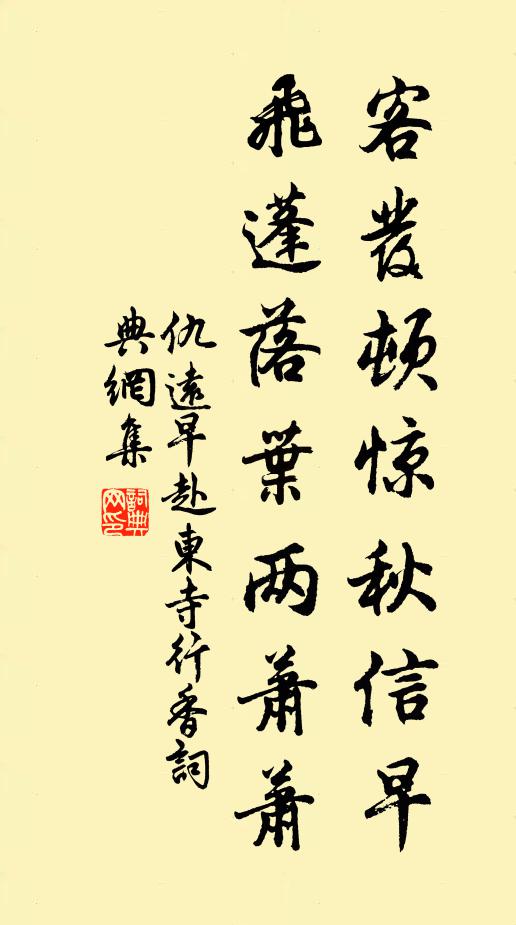 客發頓惊秋信早
飛蓬落葉两蕭蕭
仇遠早赴東寺行香詞
典網集
詞典网印